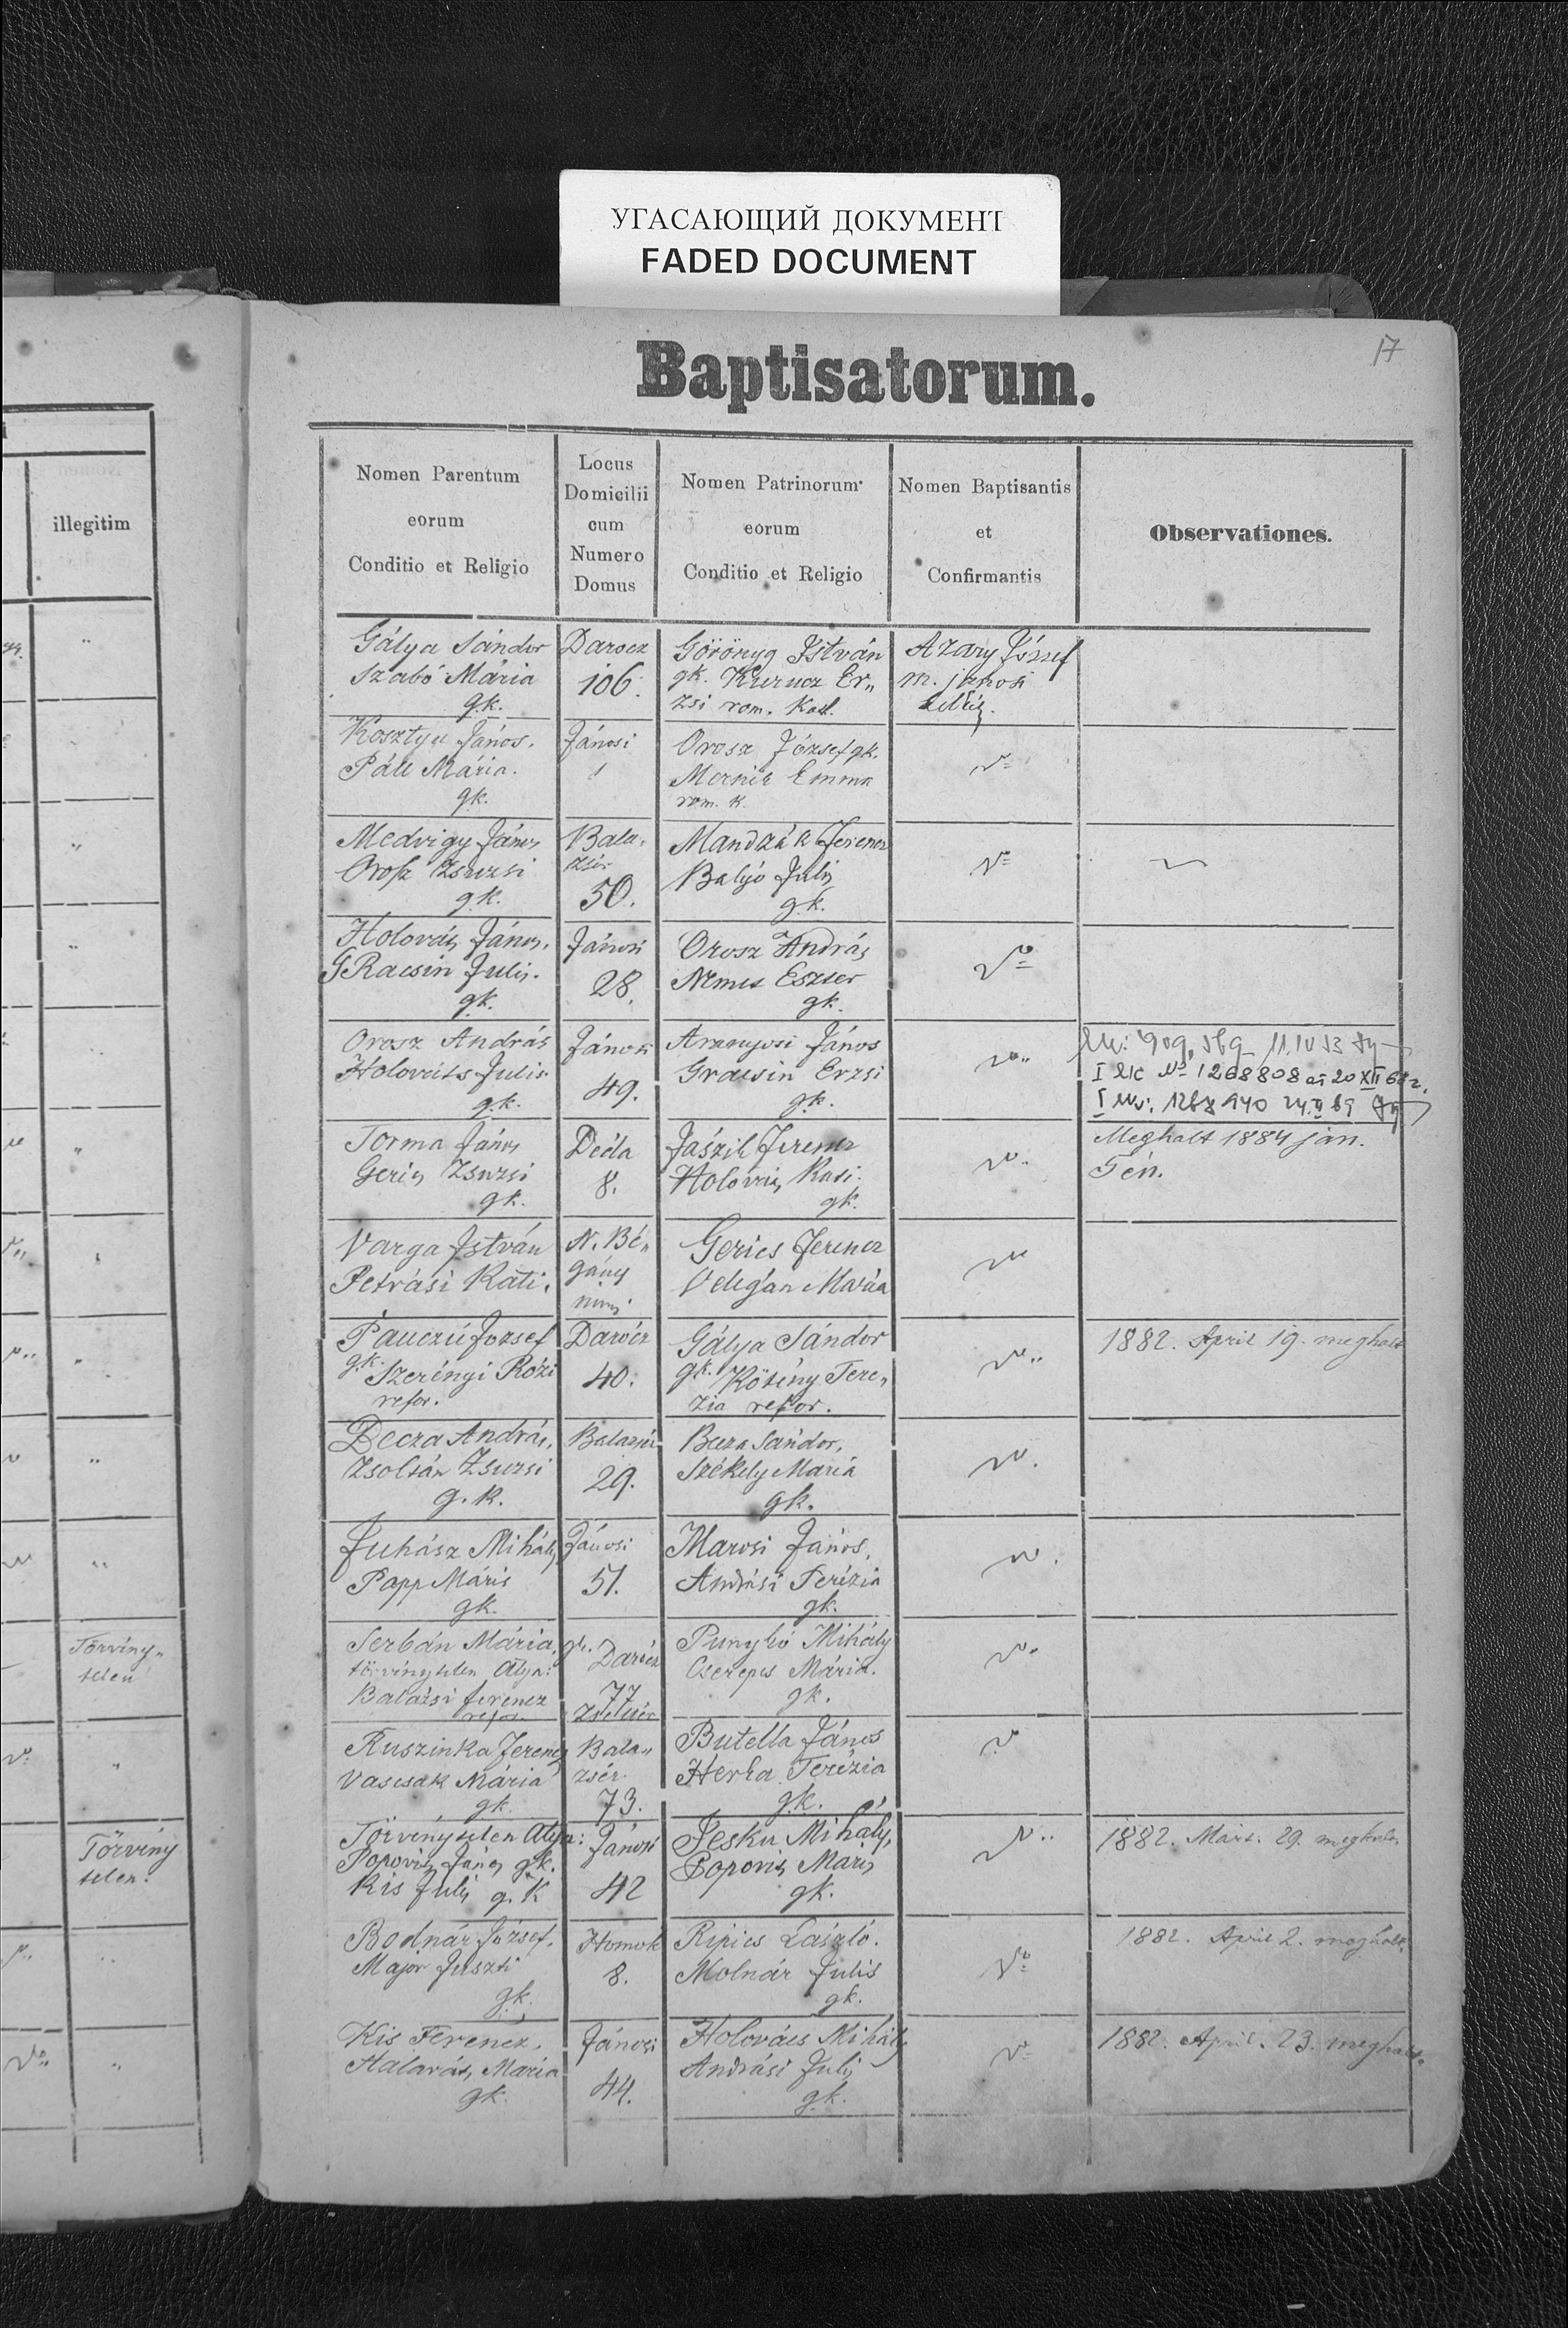 УГАСАЮЩИЙ ДОКУМЕНТ
FADED DOCUMENT
17
Baptisatorum.
illegitim
Nomen Parentum
eorum
Conditio et Religio
Locus
Domicilii
cum
Numero
Domus
Nomen Patrinorum
eorum
Conditio et Religio
Nomen Baptisantis
et
Confirmantis
Observationes.
Gálya Sándor
Szabó Mária
gk.
Darocz
106.
Görönyg István
gk. Kurucz Er„
zsi rom. Kat.
Azary József
m. jánosi
Kosztyu János.
Páll Mária.
gk.
Jánosi
Orosz József gk.
Emma
rom. k.
Medvigy János
Orosz Zsuzsi
gk.
Bala„
zsér
50.
Mandzák Ferencz
Balyó Julis
gk.
Holovás János.
Gracsin Julis.
gk.
Jánosi
28.
Orosz András
Nemes Eszter
gk.
Orosz András
Holováts Julis
gk.
Jánosi
49.
Aranyosi János
Gracsin Erzsi
gk.
11.IV 53
I № 1268808 20 XII 68
I
Torma János
Geris Zsuzsi
gk.
Deéla
8.
Jászik Ferencz
Holovás Kati.
gk.
Meghalt 1884 jan.
Varga István
Petrási Kati.
N. Bé„
gány
Gerics Ferencz
Velegán Mária
Pauczú József
gk. Szerényi Rózi
refor.
Darócz
40.
Gálya Sándor
gk. Kötény Tere„
zia refor.
1882. April 19. meghalt
Decza András,
Zsoltán Zsuzsi
g. k.
Balazsér
29.
Beza Sándor,
Székely Mária
gk.
Juhász Mihály
Papp Máris
gk.
Jánosi
51.
Marosi János,
Andrási Terézia
gk.
Törvény„
telen
Serbán Mária, gk.
törvénytelen Atya:
Balázsi Ferencz
refor.
Darócz
77
Punykó Mihály
Cserepes Mária.
gk.
Ruszinka Ferencz
Vascsak Mária
gk.
Bala„
zsér.
73.
Butella János
Herka Terézia
gk.
Törvény
telen.
Törvénytelen Atya:
Popovis János gk.
Kis Julis g. k
Jánosi
42
Jesku Mihály,
Popovis Maris
gk.
1882. Márt. 29. meghalt
Bodnár József.
Major Juszti
gk.
Homok
8.
Ripics László.
Molnár Julis
gk.
1882. April 2. meghalt.
Kis Ferencz,
Halavás Mária
gk.
Jánosi
44.
Holovács Mihály
Andrási Julis
gk.
1882. April. 23. meghalt.